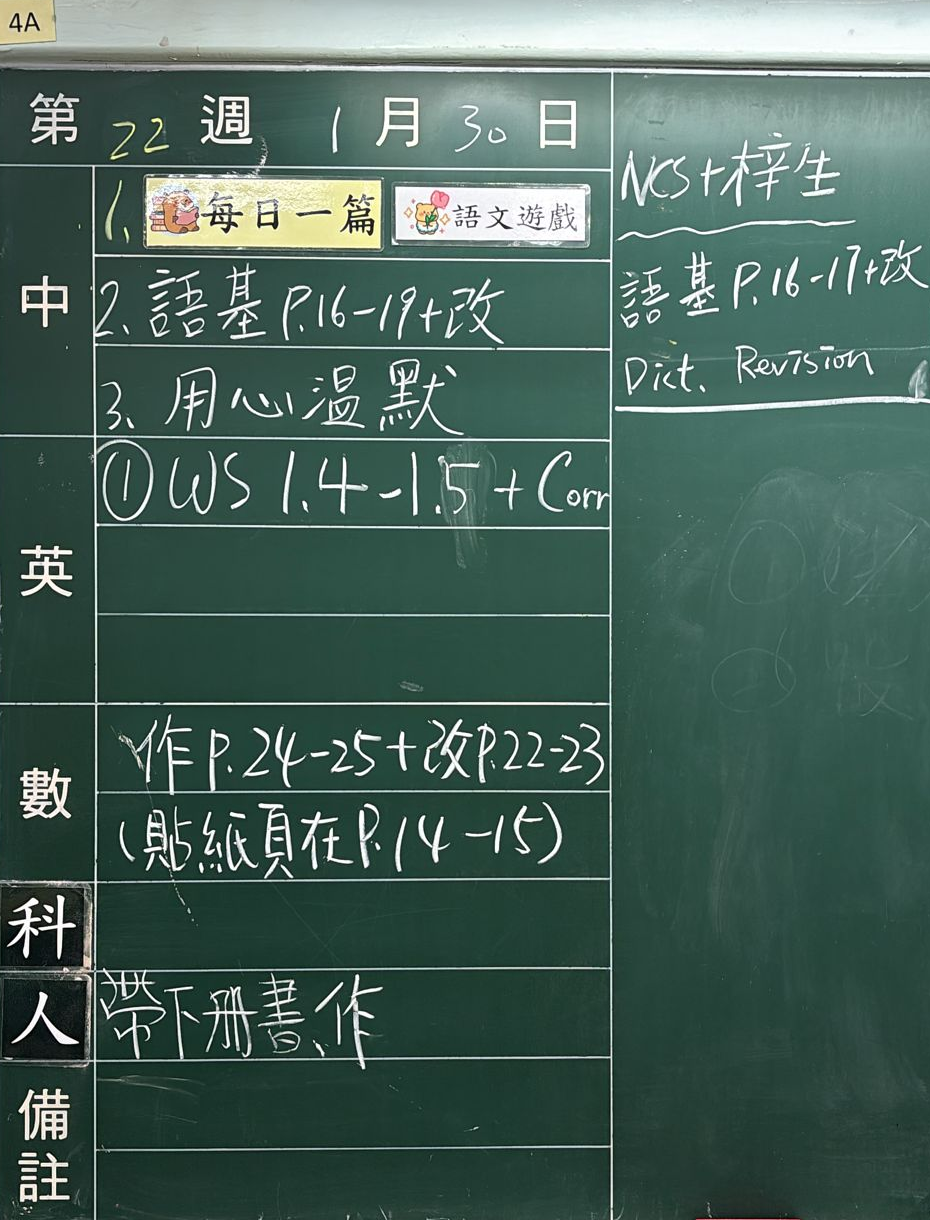 4A
第 22 週 1 月 30 日
中
1. 每日一篇 語文遊戲
2. 語基 P.16-19+改
3. 用心温默
英
① WS 1.4-1.5 + Corr
數
作 P.24-25+改P.22-23
(貼紙頁在P.14-15)
科
人
帶下册書、作
備註
NCS+梓生
語基 P.16-17+改
Dict. Revision